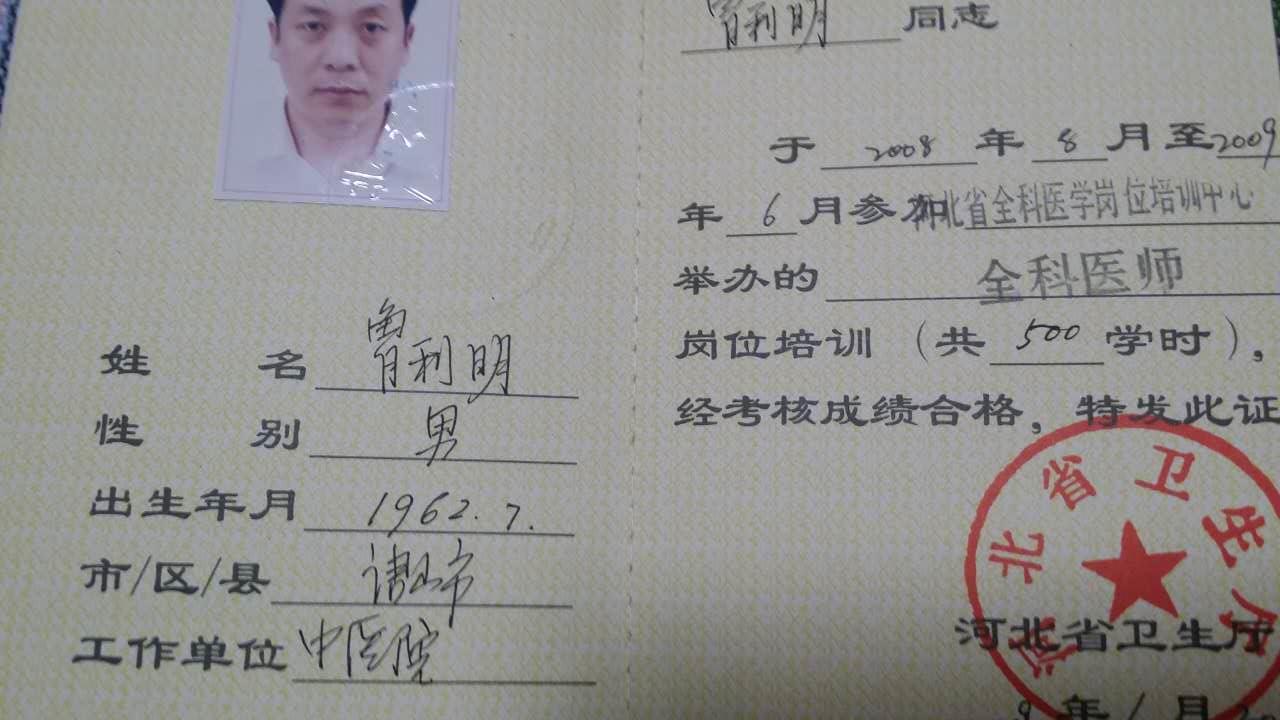 姓 名 曾利明
性 别 男
出生年月 1962.7.
市/区/县
工作单位 中医院
曾利明 同志
于 2008 年 8 月至2009
年 6 月参加河北省全科医学岗位培训中心
举办的 全科医师
岗位培训（共 500 学时），
经考核成绩合格，特发此证
河北省卫生厅
河北省卫生厅
9 年 1 月